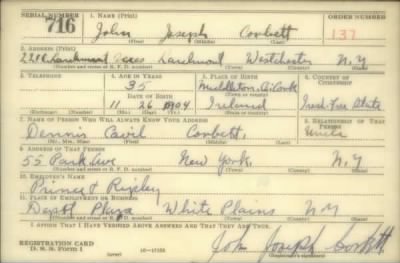 SERIAL NUMBER 1. NAME (Print) ORDER NUMBER
716 John Joseph Corbett 137
(First) (Middle) (Last)
2. ADDRESS (Print)
Larchmont Acres Larchmont Westchester N.Y
(Number and street or R. F. D. number) (Town) (County) (State)
3. TELEPHONE 4. AGE IN YEARS 5. PLACE OF BIRTH 6. COUNTRY OF CITIZENSHIP
35 Middleton, Co. Cork
DATE OF BIRTH (Town or county)
11 26 1904 Ireland Irish Free State
(Exchange) (Number) (Mo.) (Day) (Yr.) (State or country)
7. NAME OF PERSON WHO WILL ALWAYS KNOW YOUR ADDRESS 8. RELATIONSHIP OF THAT PERSON
Dennis Corbett, Uncle
(Mr., Mrs., Miss) (First) (Middle) (Last)
9. ADDRESS OF THAT PERSON
55 Park Ave New York, N.Y
(Number and street or R. F. D. number) (Town) (County) (State)
10. EMPLOYER'S NAME
Prince & Ripley
11. PLACE OF EMPLOYMENT OR BUSINESS
Depot Plaza White Plains N.Y
(Number and street or R. F. D. number) (Town) (County) (State)
I AFFIRM THAT I HAVE VERIFIED ABOVE ANSWERS AND THAT THEY ARE TRUE.
REGISTRATION CARD
D. S. S. Form 1 (over) John Joseph Corbett
(Registrant's signature)